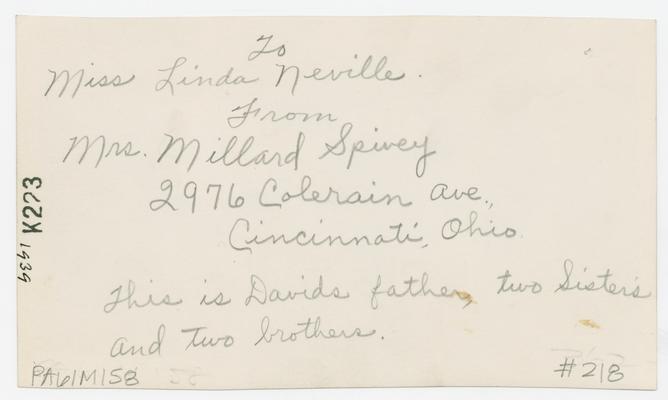 To
Miss Linda Neville.
From
Mrs. Millard Spivey
2976 Colerain Ave.,
Cincinnati, Ohio.
This is Davids father, two Sisters
and two brothers.
K223
1939
PA61M158
#218